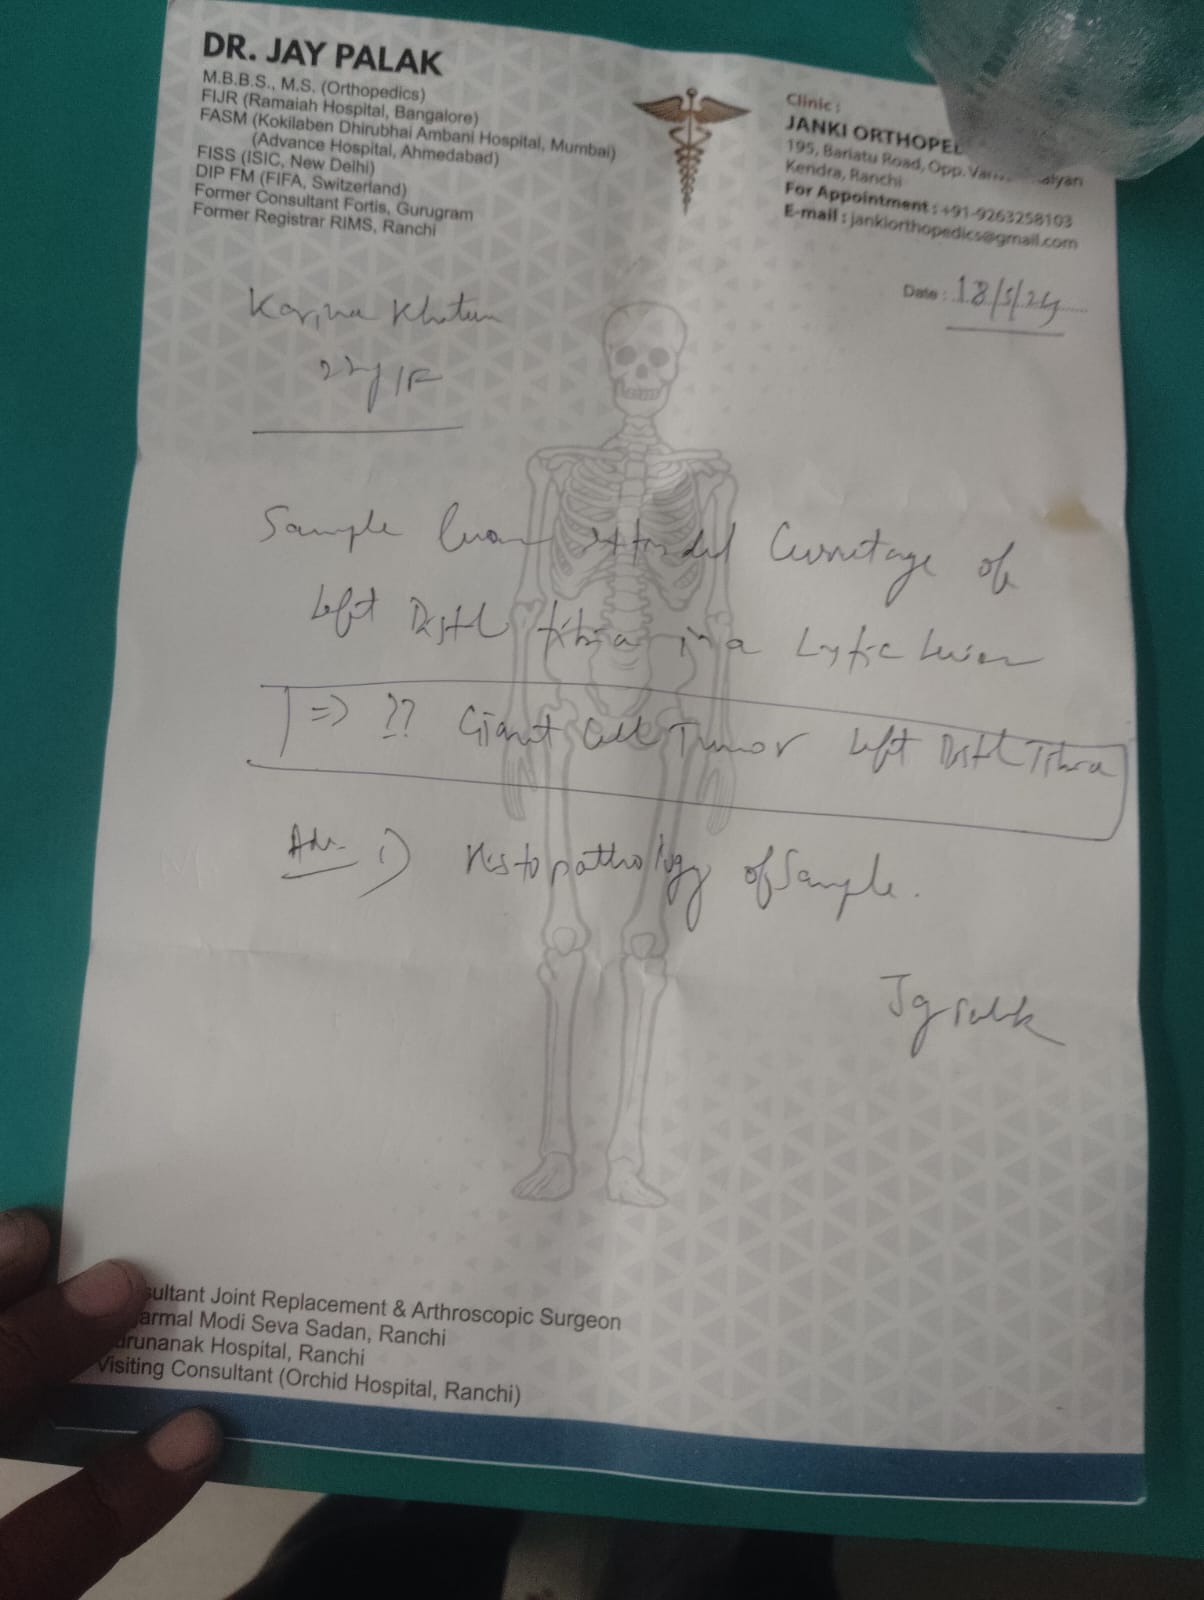 DR. JAY PALAK
M.B.B.S., M.S. (Orthopedics)
FIJR (Ramaiah Hospital, Bangalore)
FASM (Kokilaben Dhirubhai Ambani Hospital, Mumbai)
(Advance Hospital, Ahmedabad)
FISS (ISIC, New Delhi)
DIP FM (FIFA, Switzerland)
Former Consultant Fortis, Gurugram
Former Registrar RIMS, Ranchi
Clinic :
JANKI ORTHOPE
195, Bariatu Road, Opp.
Kendra, Ranchi
For Appointment : +91-9263258103
E-mail : jankiorthopedics@gmail.com
Date : 18/5/24
Khatun
22y/F
Sample from extended Curretage of
left Distl tibia in a Lytic lesion
=> ?? Giant Cell Tumor left Distl Tibia
Adv. 1) Histopathology of Sample.
sultant Joint Replacement & Arthroscopic Surgeon
armal Modi Seva Sadan, Ranchi
runanak Hospital, Ranchi
Visiting Consultant (Orchid Hospital, Ranchi)